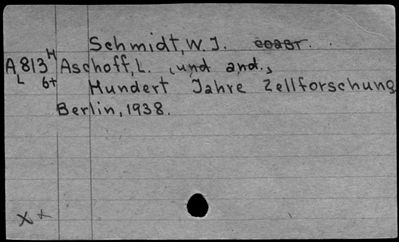 Schmidt, W. J.
A 813 H Aschoff, L. und and.,
L 6+ Hundert Jahre Zellforschung
Berlin, 1938.
X x